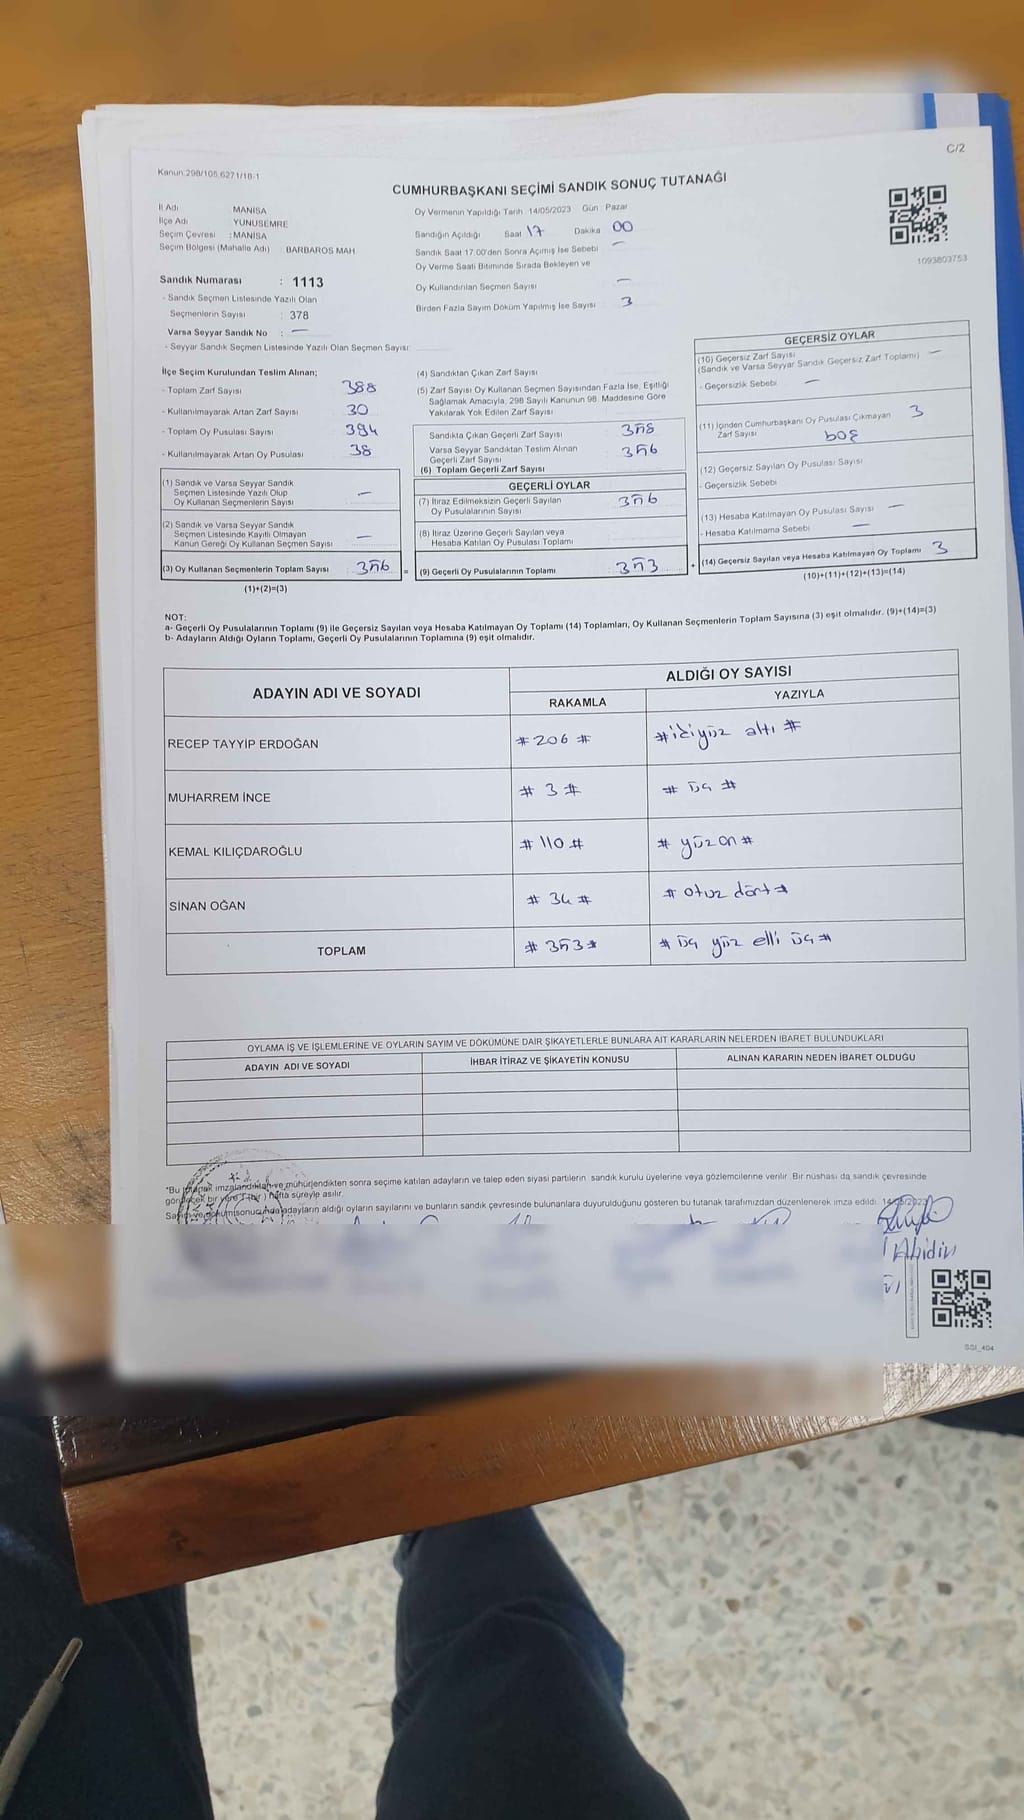 C/2
Kanun:298/105,6271/18-1
CUMHURBAŞKANI SEÇİMİ SANDIK SONUÇ TUTANAĞI
İl Adı MANİSA
İlçe Adı YUNUSEMRE
Seçim Çevresi : MANİSA
Seçim Bölgesi (Mahalle Adı) BARBAROS MAH
Sandık Numarası : 1113
- Sandık Seçmen Listesinde Yazılı Olan
Seçmenlerin Sayısı : 378
Varsa Seyyar Sandık No : —
- Seyyar Sandık Seçmen Listesinde Yazılı Olan Seçmen Sayısı:
Oy Vermenin Yapıldığı Tarih 14/05/2023 Gün : Pazar
Sandığın Açıldığı Saat 17 Dakika 00
Sandık Saat 17.00'den Sonra Açımış İse Sebebi —
Oy Verme Saati Bitiminde Sırada Bekleyen ve
Oy Kullandırılan Seçmen Sayısı —
Birden Fazla Sayım Döküm Yapılmış İse Sayısı : 3
1093803753
İlçe Seçim Kurulundan Teslim Alınan;
- Toplam Zarf Sayısı 388
- Kullanılmayarak Artan Zarf Sayısı 30
- Toplam Oy Pusulası Sayısı 394
- Kullanılmayarak Artan Oy Pusulası 38
(1) Sandık ve Varsa Seyyar Sandık
Seçmen Listesinde Yazılı Olup
Oy Kullanan Seçmenlerin Sayısı —
(2) Sandık ve Varsa Seyyar Sandık
Seçmen Listesinde Kayıtlı Olmayan
Kanun Gereği Oy Kullanan Seçmen Sayısı —
(3) Oy Kullanan Seçmenlerin Toplam Sayısı 356 =
(1)+(2)=(3)
(4) Sandıktan Çıkan Zarf Sayısı
(5) Zarf Sayısı Oy Kullanan Seçmen Sayısından Fazla İse, Eşitliği
Sağlamak Amacıyla, 298 Sayılı Kanunun 98. Maddesine Göre
Yakılarak Yok Edilen Zarf Sayısı
Sandıkta Çıkan Geçerli Zarf Sayısı 358
Varsa Seyyar Sandıktan Teslim Alınan
Geçerli Zarf Sayısı 356
(6) Toplam Geçerli Zarf Sayısı
GEÇERLİ OYLAR
(7) İtiraz Edilmeksizin Geçerli Sayılan
Oy Pusulalarının Sayısı 356
(8) İtiraz Üzerine Geçerli Sayılan veya
Hesaba Katılan Oy Pusulası Toplamı
(9) Geçerli Oy Pusulalarının Toplamı 353 +
GEÇERSİZ OYLAR
(10) Geçersiz Zarf Sayısı —
(Sandık ve Varsa Seyyar Sandık Geçersiz Zarf Toplamı)
- Geçersizlik Sebebi —
(11) İçinden Cumhurbaşkanı Oy Pusulası Çıkmayan 3
Zarf Sayısı boş
(12) Geçersiz Sayılan Oy Pusulası Sayısı
- Geçersizlik Sebebi
(13) Hesaba Katılmayan Oy Pusulası Sayısı —
- Hesaba Katılmama Sebebi —
(14) Geçersiz Sayılan veya Hesaba Katılmayan Oy Toplamı 3
(10)+(11)+(12)+(13)=(14)
NOT:
a- Geçerli Oy Pusulalarının Toplamı (9) ile Geçersiz Sayılan veya Hesaba Katılmayan Oy Toplamı (14) Toplamları, Oy Kullanan Seçmenlerin Toplam Sayısına (3) eşit olmalıdır. (9)+(14)=(3)
b- Adayların Aldığı Oyların Toplamı, Geçerli Oy Pusulalarının Toplamına (9) eşit olmalıdır.
ADAYIN ADI VE SOYADI ALDIĞI OY SAYISI
RAKAMLA YAZIYLA
RECEP TAYYİP ERDOĞAN # 206 # # ikiyüz altı #
MUHARREM İNCE # 3 # # üç #
KEMAL KILIÇDAROĞLU # 110 # # yüzon #
SİNAN OĞAN # 34 # # otuz dört #
TOPLAM # 353 # # üç yüz elli üç #
OYLAMA İŞ VE İŞLEMLERİNE VE OYLARIN SAYIM VE DÖKÜMÜNE DAİR ŞİKAYETLERLE BUNLARA AİT KARARLARIN NELERDEN İBARET BULUNDUKLARI
ADAYIN ADI VE SOYADI İHBAR İTİRAZ VE ŞİKAYETİN KONUSU ALINAN KARARIN NEDEN İBARET OLDUĞU
*Bu tutanak imzalandıktan ve mühürlendikten sonra seçime katılan adayların ve talep eden siyasi partilerin sandık kurulu üyelerine veya gözlemcilerine verilir. Bir nüshası da sandık çevresinde
görülecek bir yere 1 (bir) hafta süreyle asılır.
Sayım ve döküm sonucunda adayların aldığı oyların sayılarını ve bunların sandık çevresinde bulunanlara duyurulduğunu gösteren bu tutanak tarafımızdan düzenlenerek imza edildi. 14/05/2023
Abidin
SSI_404